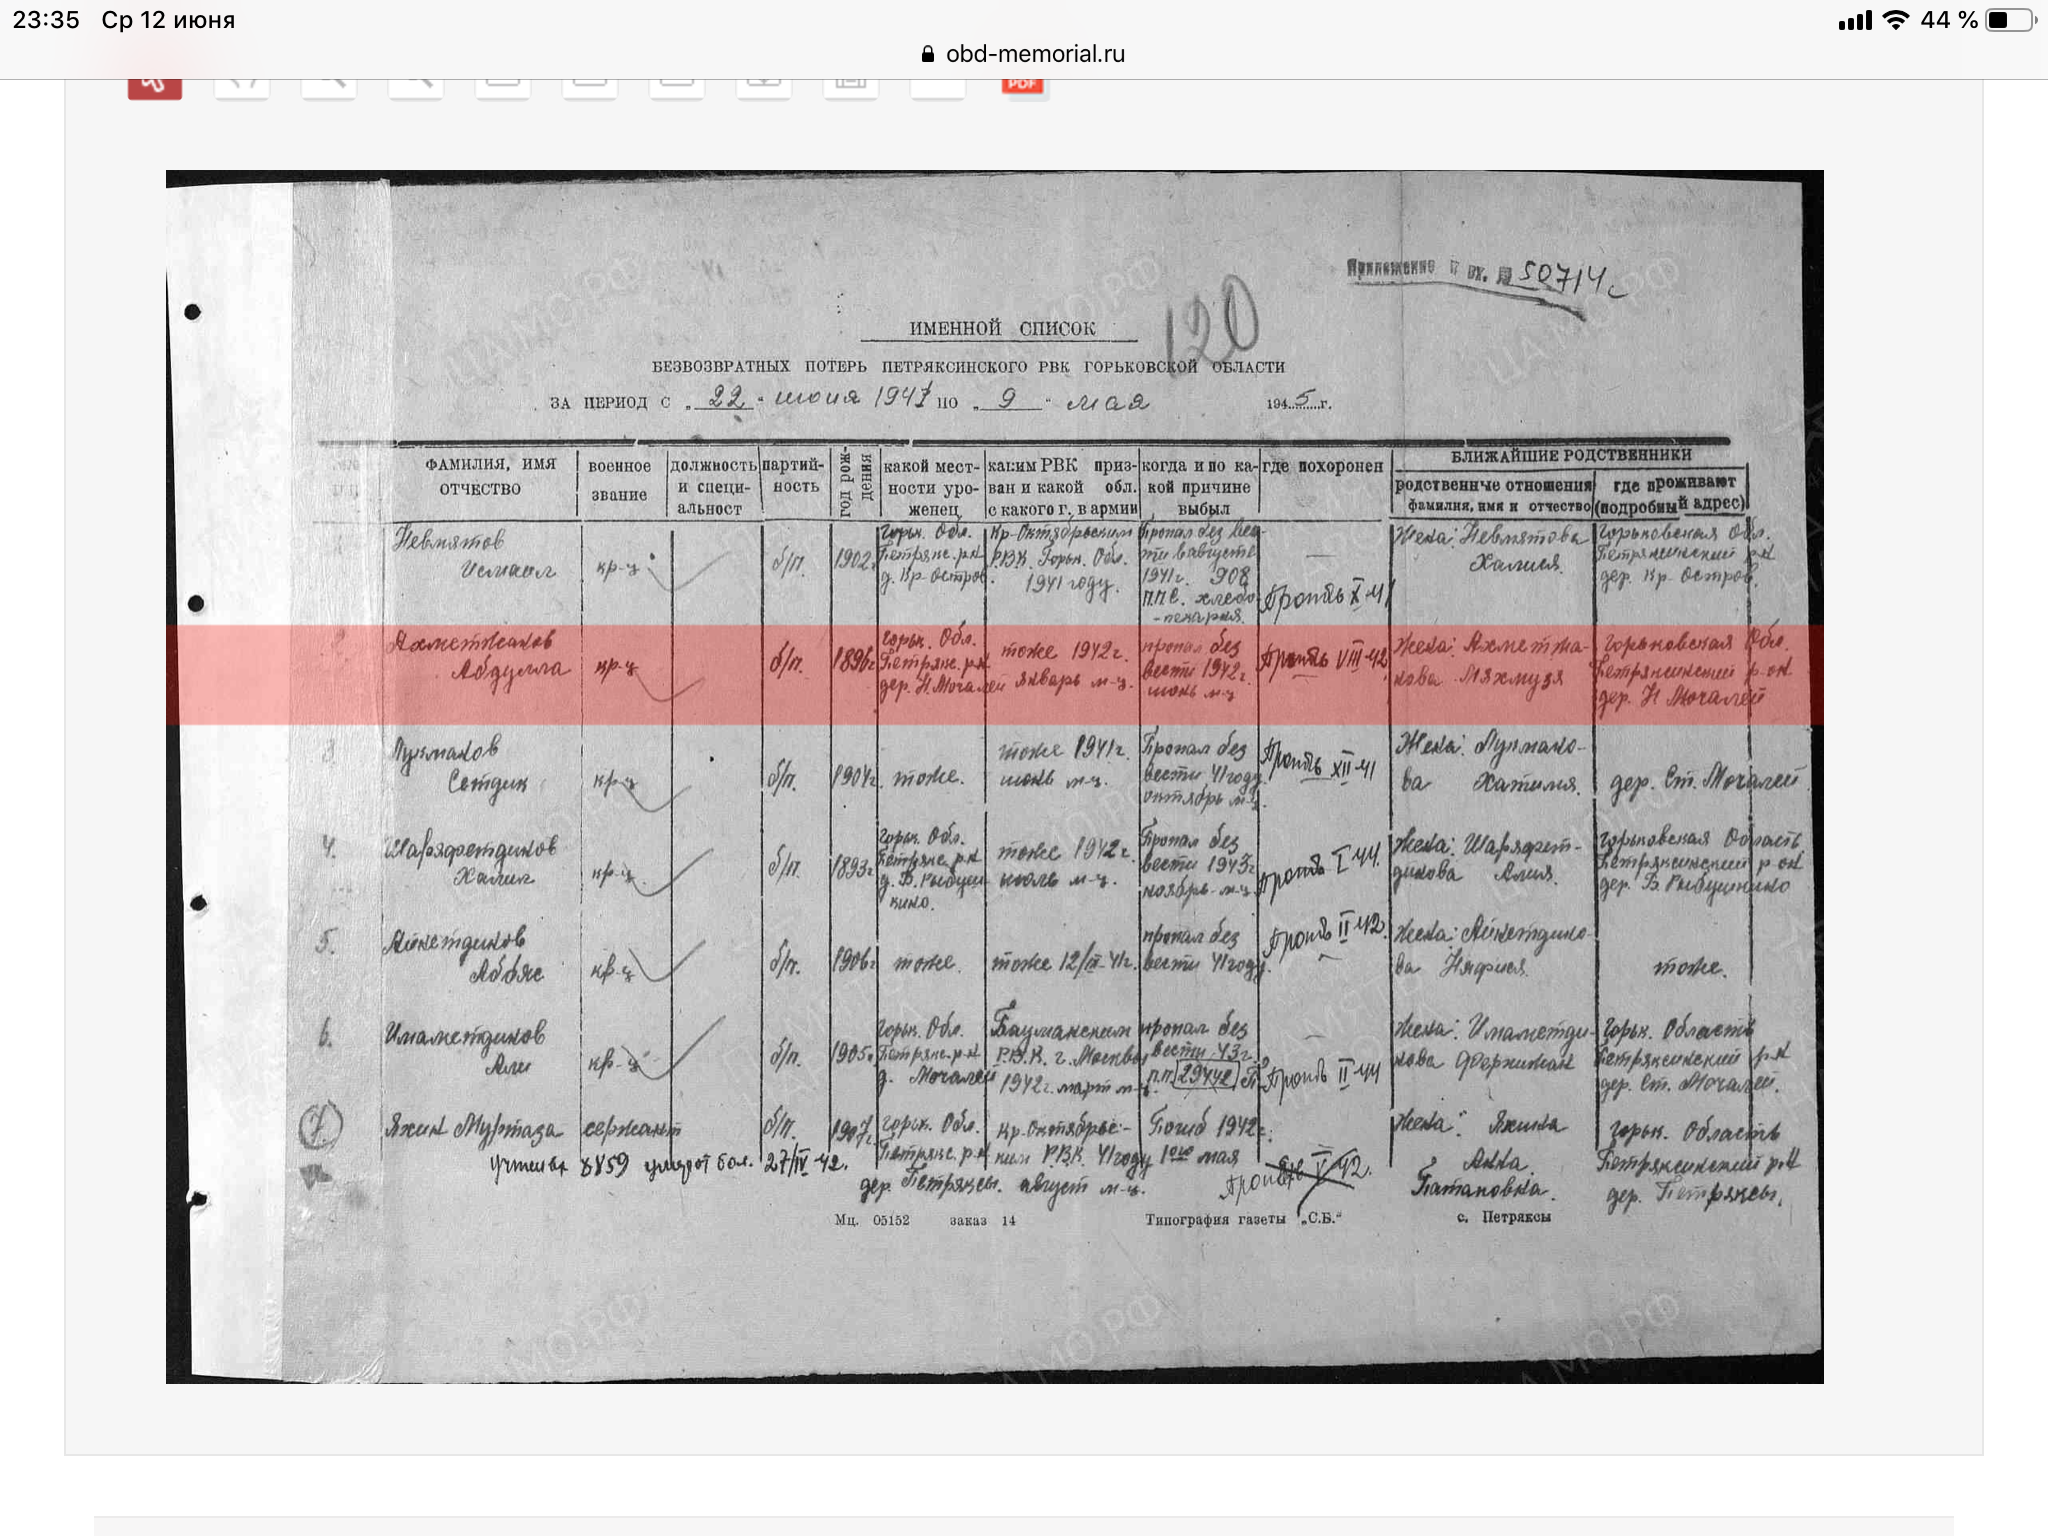 23:35 Ср 12 июня
44 %
obd-memorial.ru
PDF
Приложение к вх. № 50714с
120
ИМЕННОЙ СПИСОК
БЕЗВОЗВРАТНЫХ ПОТЕРЬ ПЕТРЯКСИНСКОГО РВК ГОРЬКОВСКОЙ ОБЛАСТИ
ЗА ПЕРИОД С „ 22 “ июня 1941 ПО „ 9 “ мая 1945 г.
ФАМИЛИЯ, ИМЯ ОТЧЕСТВО
военное звание
должность и специальност
партийность
год рождения
какой местности уроженец
каким РВК призван и какой обл. с какого г. в армии
когда и по какой причине выбыл
где похоронен
БЛИЖАЙШИЕ РОДСТВЕННИКИ
родственные отношения фамилия, имя и отчество
где проживают (подробный адрес)
Невмятов Исмаил кр-ц б/п. 1902г Горьк. Обл. Петрякс. р-н д. Кр-Остров Кр-Октябрьским Р.В.К. Горьк. Обл. 1941 году. Пропал без вести в августе 1941г. 908 п.п.с. хлебопекарня. — Пропвб X-41 Жена: Невмятова Халися. Горьковская Обл. Петряксинский р-н дер. Кр-Остров.
2 Ахметжанов Абдулла кр-ц б/п. 1896г Горьк. Обл. Петрякс. р-н дер. Н. Мочалей тоже 1942г. январь м-ц. пропал без вести 1942г. июнь м-ц Пропвб VIII-42 Жена: Ахметжанова Мяхмузя Горьковская Обл. Петряксинский р-он дер. Н Мочалей
3 Лукманов Сетдик кр-ц б/п. 1904г тоже. тоже 1941г. июнь м-ц. Пропал без вести 41 году. октябрь м-ц. Пропвб XII-41 Жена: Лукманова Хатимя. дер. Ст. Мочалей
4. Шарафетдинов Халик кр-ц. б/п. 1893г Горьк. Обл. Петрякс. р-н д. Б. Рыбушкино. тоже 1942г. июль м-ц. Пропал без вести 1943г ноябрь м-ц. Пропвб I-44. Жена: Шарафетдинова Алия. Горьковская Область Петряксинский р-он дер. Б. Рыбушкино
5. Айнетдинов Аббяс кр-ц б/п. 1906г тоже. тоже 12/IX-41г. пропал без вести 41 году. Пропвб II-42. Жена: Айнетдинова Няфися. тоже.
6. Имаметдинов Али кр-ц б/п. 1905г Горьк. Обл. Петрякс. р-н д. Мочалей Бауманским Р.В.К. г. Москвы 1942г. март м-ц. пропал без вести 43г. п.п. 29442 — Пропвб II-44 Жена: Имаметдинова Фоержиман Горьк. Область Петряксинский р-н дер. Ст. Мочалей.
7 Яхин Муртаза сержант б/п. 1907г Горьк. Обл. Петрякс. р-н дер. Петряксы. Кр-Октябрьским Р.В.К. 41 году август м-ц. Погиб 1942г. 1ого мая Пропвб V-42. Жена: Яхина Анна Батановна. Горьк. Область Петряксинский р-н дер. Петряксы.
учтен вх 8859 умер от бол. 27/IV-42.
Мц. 05152 заказ 14 Типография газеты „С.Б.“ с. Петряксы